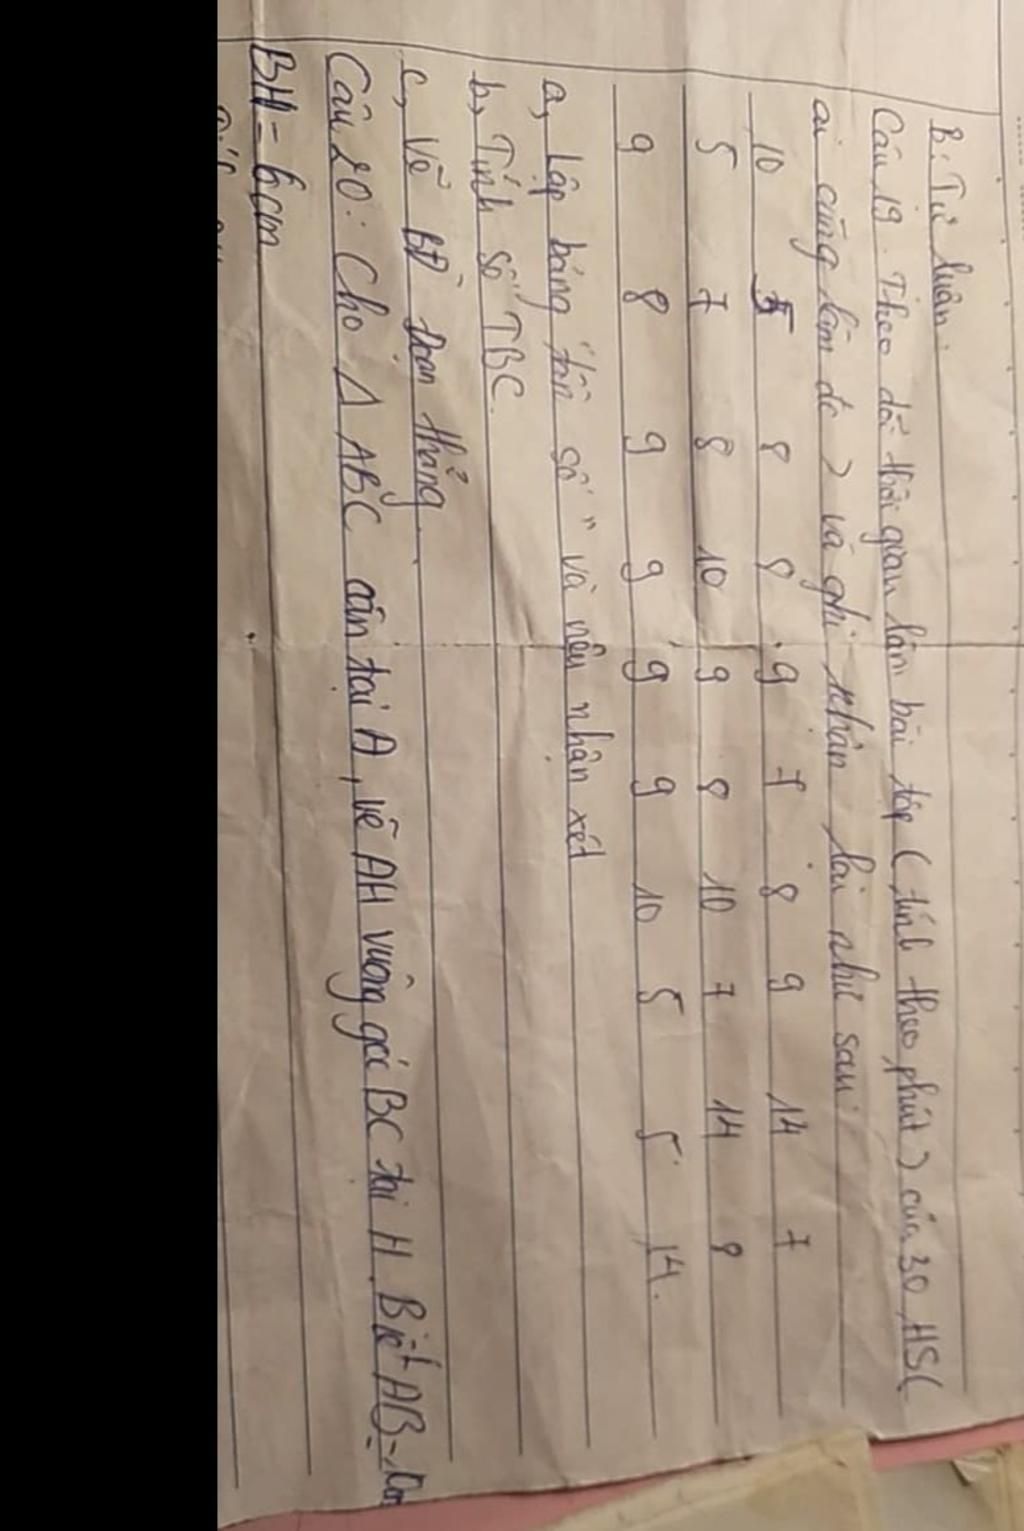 B. Tự luận.
Câu 19. Theo dõi thời gian làm bài tập (tính theo phút) của 30 HS(
ai cũng làm đc) và ghi nhận lại như sau:
10 5 8 8 9 7 8 9 14 7
5 7 8 10 9 8 10 7 14 8
9 8 9 9 9 9 10 5 5 14.
a, Lập bảng "tần số" và nêu nhận xét
b, Tính số TBC.
c, Vẽ BĐ đoạn thẳng.
Câu 20. Cho Δ ABC cân tại A, vẽ AH vuông góc BC tại H. Biết AB=
BH = 6cm